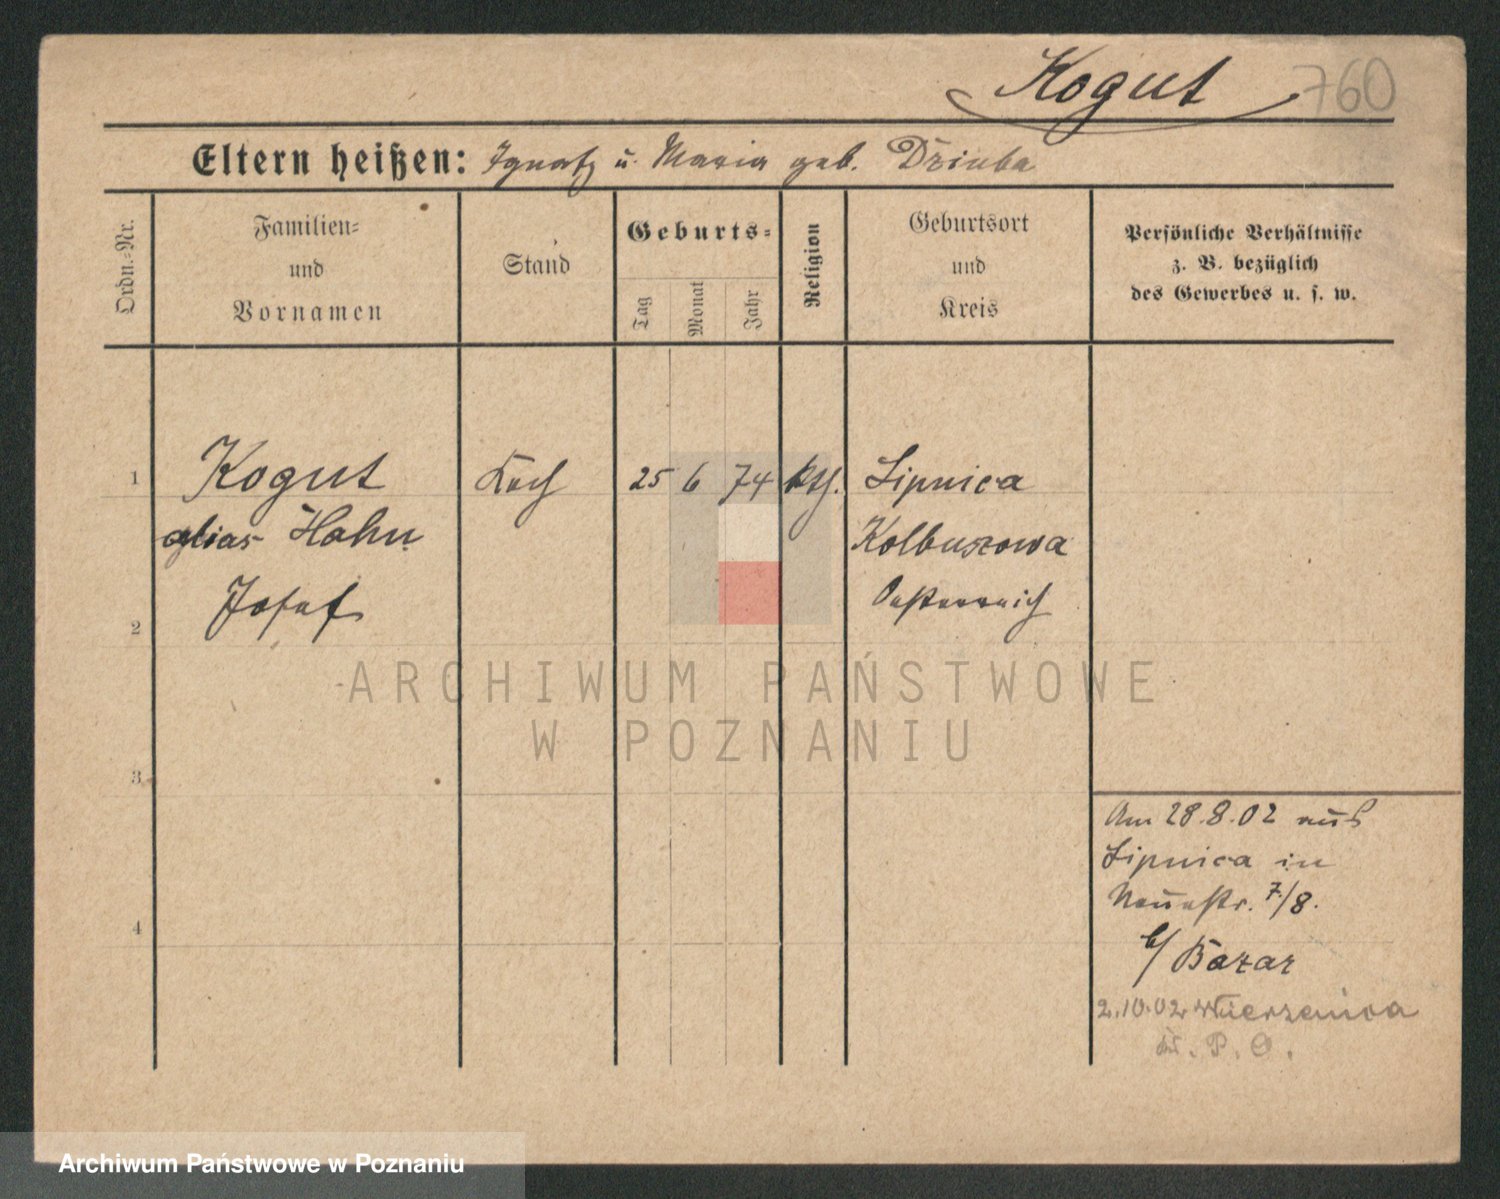 Kogut 760
Eltern heißen: Ignatz u. Maria geb. Dziuba
Ordn.-Nr.
Familien-
und
Vornamen
Stand
Geburts-
Tag
Monat
Jahr
Religion
Geburtsort
und
Kreis
Persönliche Verhältnisse
z. B. bezüglich
des Gewerbes u. s. w.
1 Kogut Koch 25 6 74 kth. Lipnica
alias Hahn Kolbuszowa
Josef Oesterreich
2
ARCHIWUM PAŃSTWOWE
W POZNANIU
3
Am 28.8.02 aus
Lipnica in
Neuestr. 7/8.
4
b/ Bazar
2.10.02 Wierzenica
Kr. P. O.
Archiwum Państwowe w Poznaniu